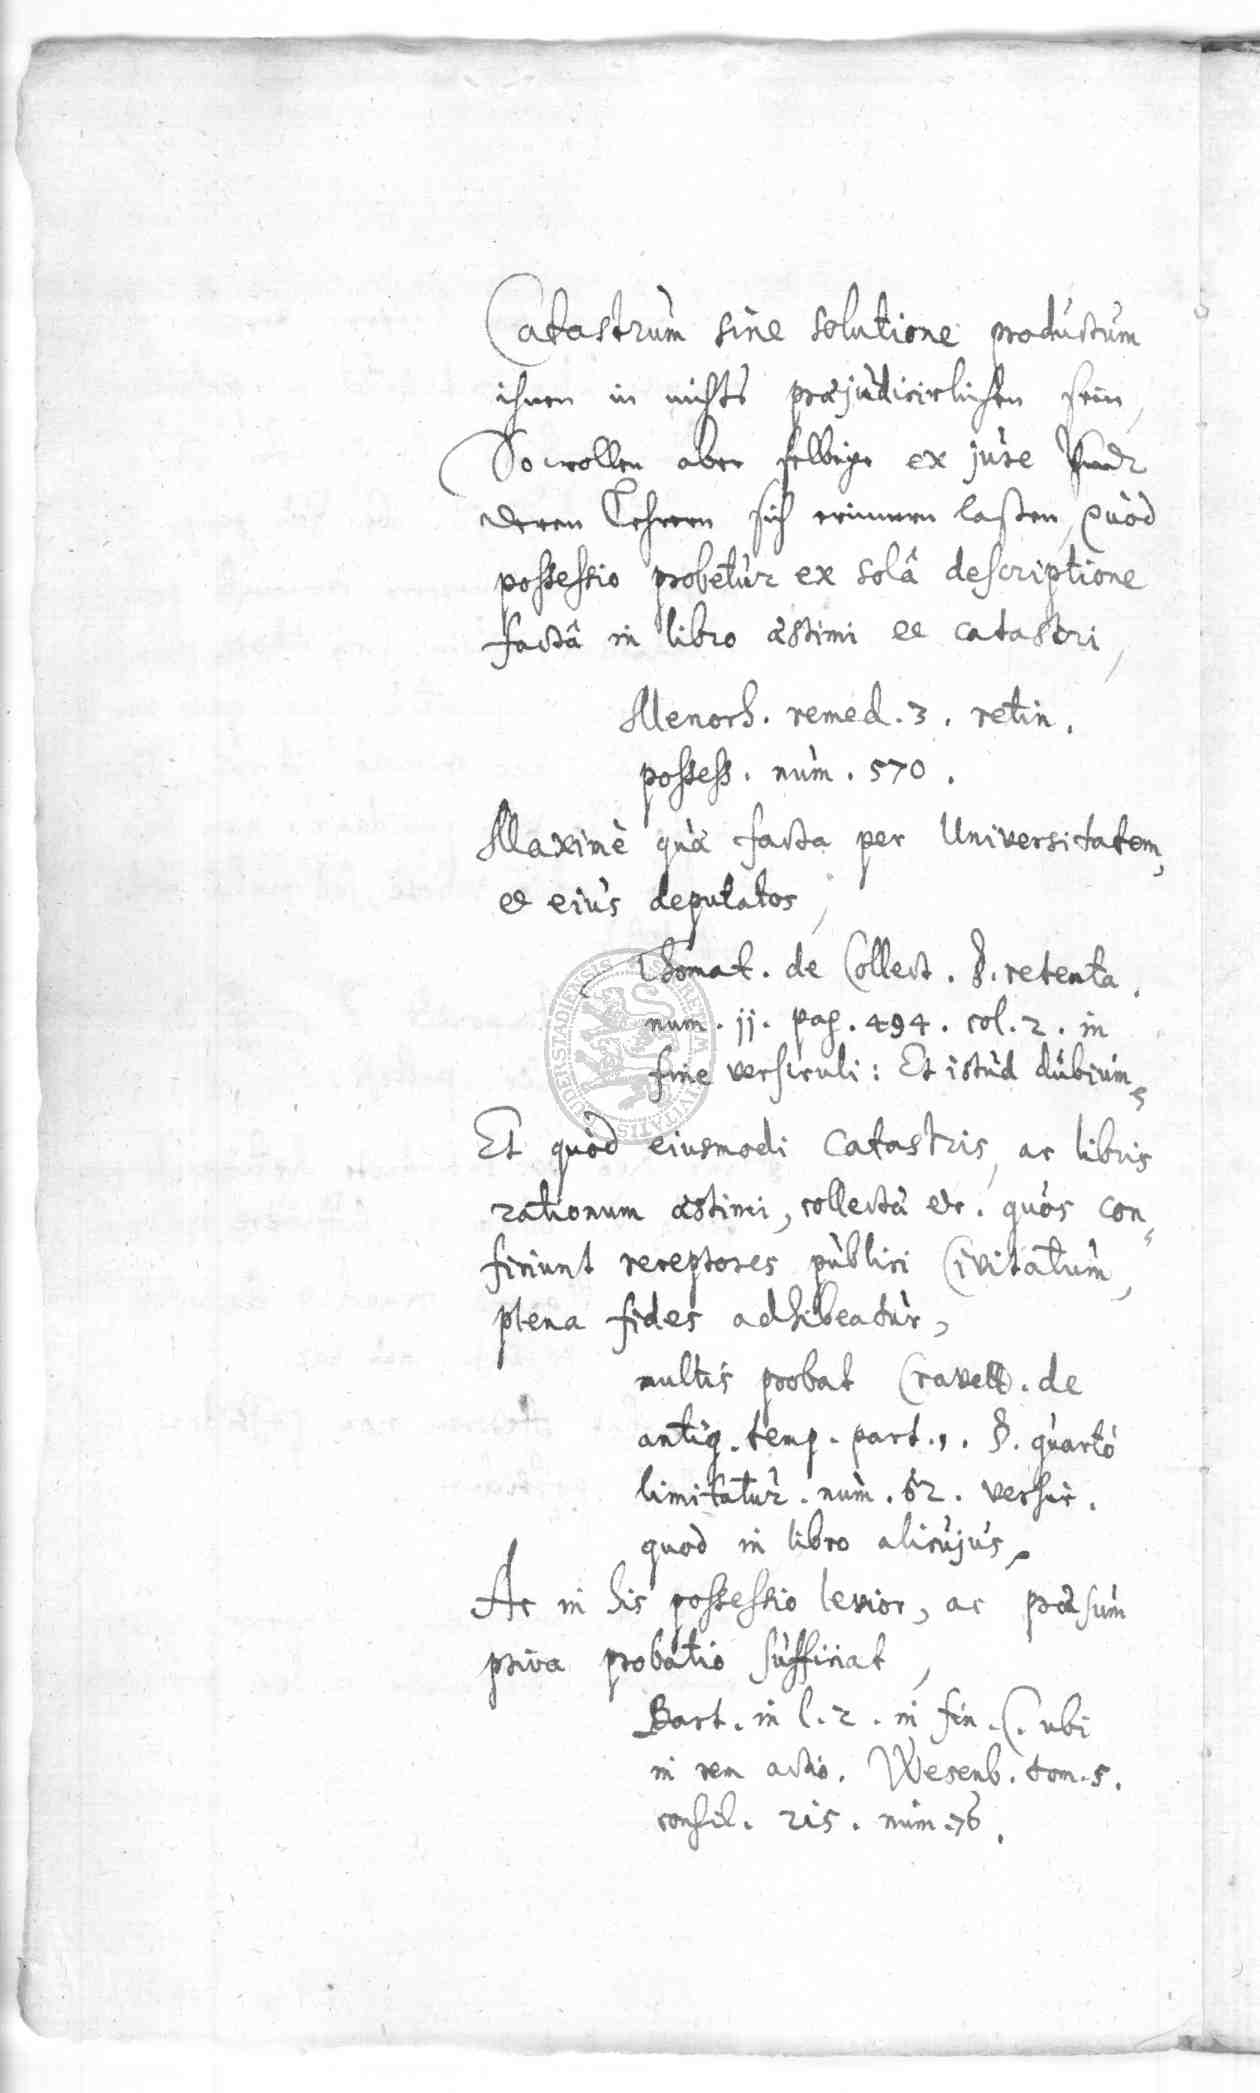 Catastrùm sine solutione productum
ihnen in nichts præjùdicirlichen sein,
So wollen aber selbige ex jùre Undt
deren Lehrern sich erinnern laßen, quòd
possessio probetùr ex solâ descriptione
factâ in libro æstimi et catastri,
Menoch. remed. 3. retin.
possess. nùm. 570.
Maximè quæ facta per Universitatem,
et eiùs deputatos,
Thomat. de Collect. §. retenta.
num. jj. pag. 494. col. 2. in
fine versiculi: Et istùd dùbiùm,
Et quòd eiusmodi Catastris, ac libris
rationum æstimi, collectæ etc. quós con„
ficiunt receptores pùblici Civitatùm,
plena fides adhibeatùr,
multis probat Cravett. de
antiq. temp. part. 1. §. quartó
limitatùr. nùm. 62. versic.
quod in libro alicùjùs.
Ac in his possessio levior, ac præsùm
ptiva probatio sùfficiat,
Bart. in l. 2. in fin. C. ubi
in rem actio. Wesenb. tom. 5.
consil. 215. nùm. 76.